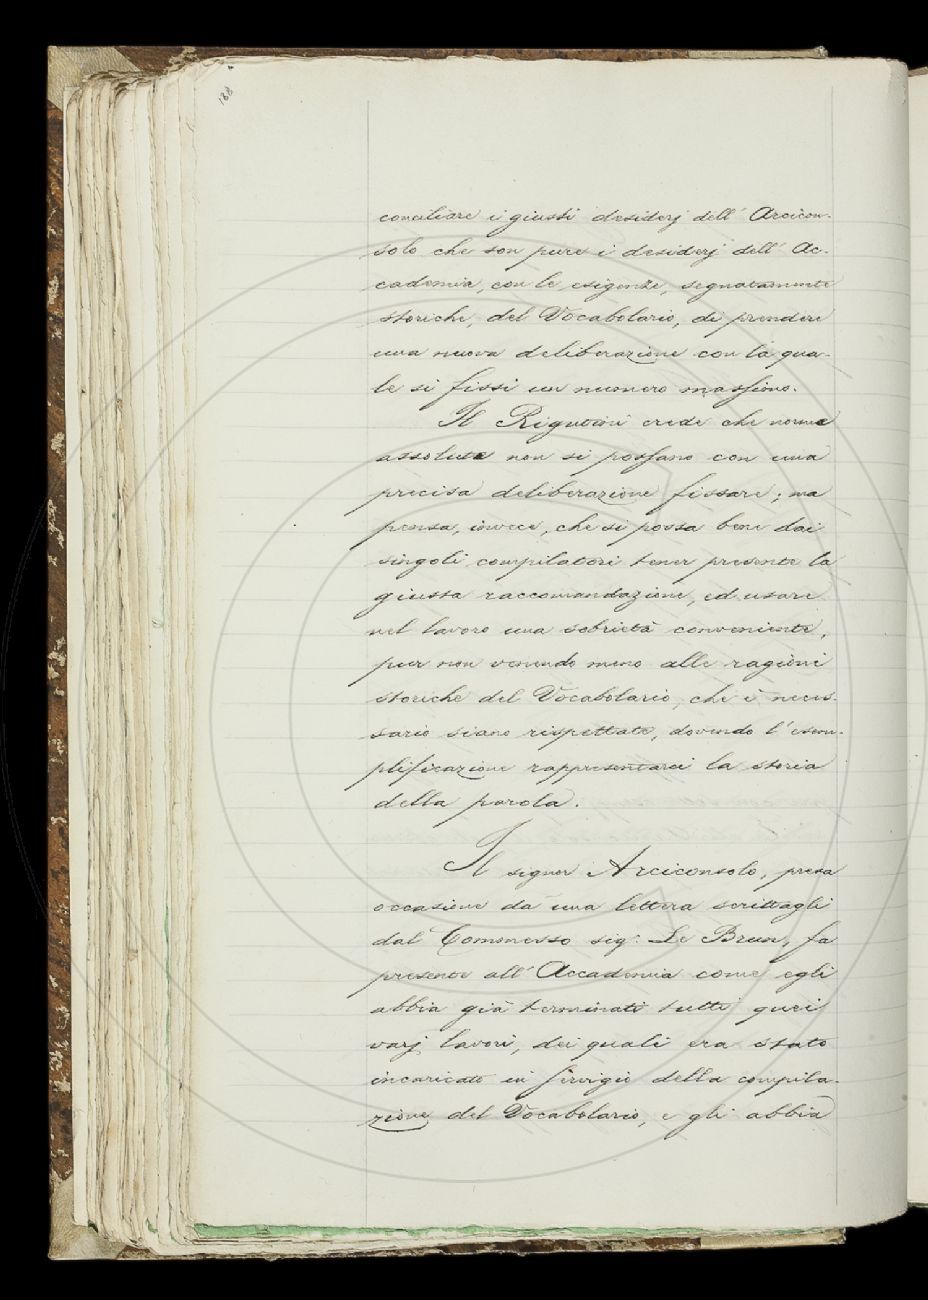 188
conciliare i giusti desiderj dell' Arcicon-
solo che son pure i desiderj dell' Ac-
cademia, con le esigenze, segnatamente
storiche, del Vocabolario, di prendere
una nuova deliberazione con la qua-
le si fissi un numero massimo.
Il Rigutini crede che norme
assolute non si possano con una
precisa deliberazione fissare; ma
pensa, invece, che si possa bene dai
singoli compilatori tener presente la
giusta raccomandazione, ed usare
nel lavoro una sobrietà conveniente,
pur non venendo meno alle ragioni
storiche del Vocabolario, che è neces-
sario siano rispettate, dovendo l'esem-
plificazione rappresentarci la storia
della parola.
Il signor Arciconsolo, presa
occasione da una lettera scrittagli
dal Commesso sig.r Le Brun, fa
presente all'Accademia come egli
abbia già terminati tutti quei
varj lavori, dei quali era stato
incaricato in servigio della compila-
zione del Vocabolario, e gli abbia